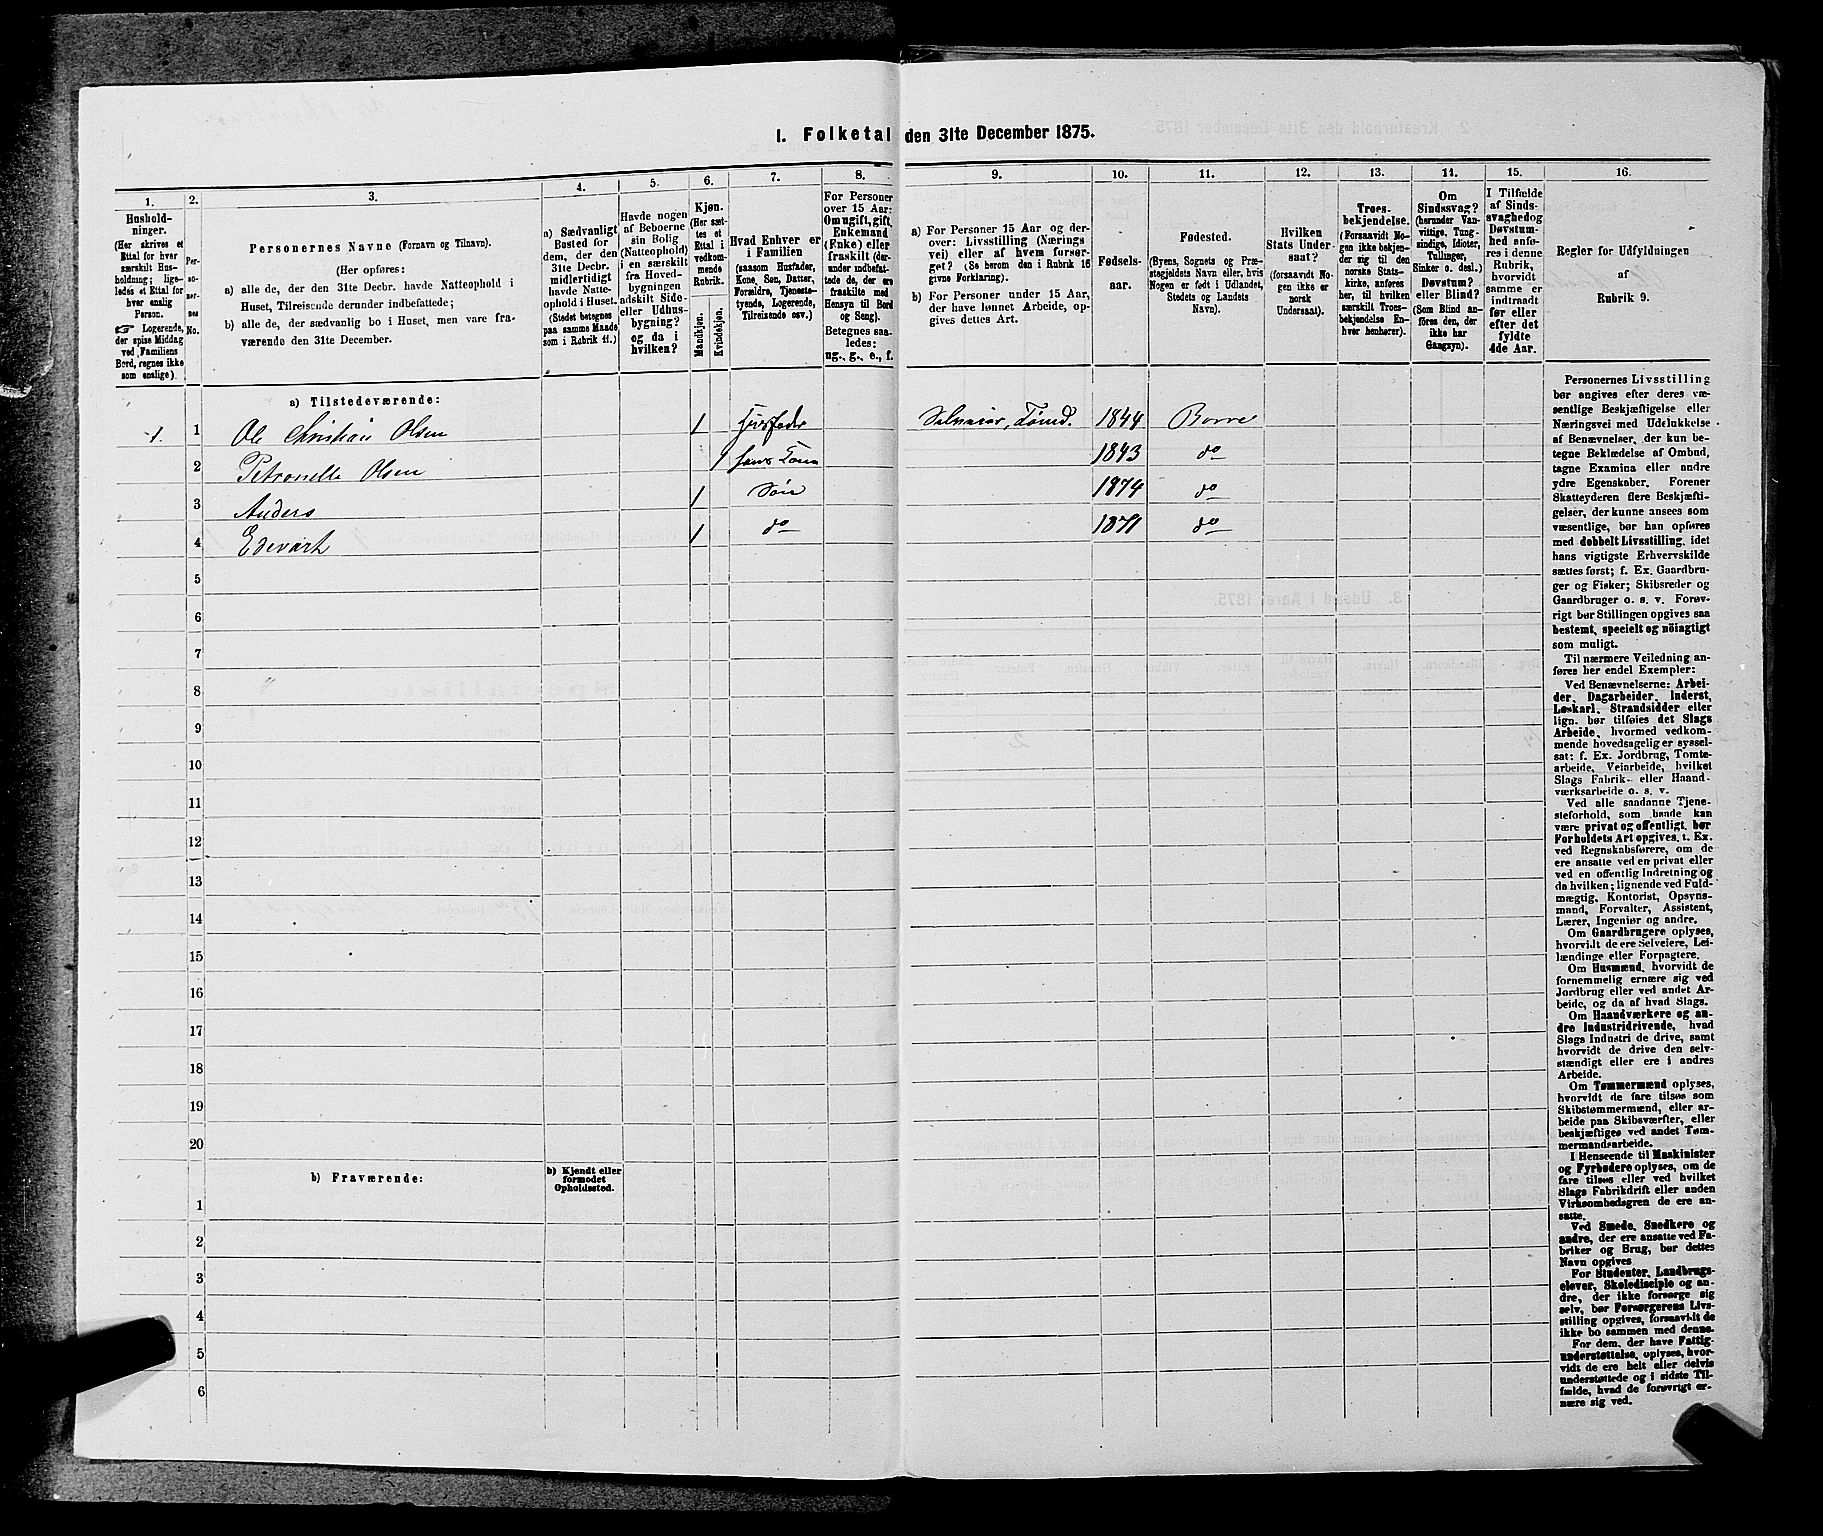 I. Folketal den 31te December 1875.
1.
Hushold-
ninger.
(Her skrives et
Ettal for hver
særskilt Hus-
holdning; lige-
ledes et Ettal for
hver enslig
Person.
☞ Logerende,
der spise Middag
ved Familiens
Bord, regnes ikke
som enslige).
2.
Per-
so-
ner-
nes
No.
3.
Personernes Navne (Fornavn og Tilnavn).
(Her opføres:
a) alle de, der den 31te Decbr. havde Natteophold i
Huset, Tilreisende derunder indbefattede;
b) alle de, der sædvanlig bo i Huset, men vare fra-
værende den 31te December.
4.
a) Sædvanligt
Bosted for
dem, der den
31te Decbr.
midlertidigt
havde Natte-
ophold i Huset.
(Stedet betegnes
paa samme Maade
som i Rubrik 11.)
5.
Havde nogen
af Beboerne
sin Bolig
(Natteophold)
i en særskilt
fra Hoved-
bygningen
adskilt Side-
eller Udhus-
bygning?
og da i
hvilken?
6.
Kjøn.
(Her sæt-
tes et
Ettal i
vedkom-
mende
Rubrik.
Mandkjøn.
Kvindekjøn.
7.
Hvad Enhver er
i Familien
(saasom Husfader,
Kone, Søn, Datter,
Forældre, Tjeneste-
tyende, Logerende,
Tilreisende osv.)
8.
For Personer
over 15 Aar:
Om ugift, gift,
Enkemand
(Enke) eller
fraskilt (der-
under indbefat-
tede de, der ere
fraskilte med
Hensyn til Bord
og Seng).
Betegnes saa-
ledes:
ug., g., e., f.
9.
a) For Personer 15 Aar og der-
over: Livsstilling (Nærings
vei) eller af hvem forsør-
get? (Se herom den i Rubrik 16
givne Forklaring).
b) For Personer under 15 Aar,
der have lønnet Arbeide, op-
gives dettes Art.
10.
Fødsels-
aar.
11.
Fødested.
(Byens, Sognets og Præ-
stegjeldets Navn eller, hvis
Nogen er født i Udlandet,
Stedets og Landets
Navn).
12.
Hvilken
Stats Under-
saat?
(forsaavidt No-
gen ikke er
norsk
Undersaat).
13.
Troes-
bekjendelse.
(Forsaavidt No-
gen ikke bekjen-
der sig til den
norske Stats-
kirke, anføres
her, til hvilken
særskilt Troes-
bekjendelse En-
hver henhører).
14.
Om
Sindssvag?
(herunder Van-
vittige, Tung-
sindige, Idioter,
Tullinger,
Sinker o. desl.)
Døvstum?
eller Blind?
(Som Blind an-
føres den, der
ikke har
Gangsyn).
15.
I Tilfælde
af Sinds-
svaghed og
Døvstum-
hed anfø-
res i denne
Rubrik,
hvorvidt
samme er
indtraadt
før eller
efter det
fyldte
4de Aar.
16.
Regler for Udfyldningen
af
Rubrik 9.
a) Tilstedeværende:
1. 1 Ole Christian Olsen 1 Husfader Selveier, Tømd. 1844 Borre
2 Petronelle Olsen 1 hans Kone 1843 do
3 Anders 1 Søn 1874 do
4 Edevart 1 do 1871 do
5
6
7
8
9
10
11
12
13
14
15
16
17
18
19
20
b) Fraværende:
b) Kjendt eller
formodet
Opholdssted.
1
2
3
4
5
6
Personernes Livsstilling
bør angives efter deres væ-
sentlige Beskjæftigelse eller
Næringsvei med Udelukkelse
af Benævnelser, der kun be-
tegne Beklædelse af Ombud,
tagne Examina eller andre
ydre Egenskaber. Forener
Skatteyderen flere Beskjæfti-
gelser, der kunne ansees som
væsentlige, bør han opføres
med dobbelt Livsstilling, idet
hans vigtigste Erhvervskilde
sættes først; f. Ex. Gaardbru-
ger og Fisker; Skibsreder og
Gaardbruger o. s. v. Forøv-
rigt bør Stillingen opgives saa
bestemt, specielt og nöiagtigt
som muligt.
Til nærmere Veiledning an-
føres her endel Exempler:
Ved Benævnelserne: Arbei-
der, Dagarbeider, Inderst,
Løskarl, Strandsidder eller
lign. bør tilføies det Slags
Arbeide, hvormed vedkom-
mende hovedsagelig er syssel-
sat; f. Ex. Jordbrug, Tomte-
arbeide, Veiarbeide, hvilket
Slags Fabrik- eller Haand-
værksarbeide o. s. v.
Ved alle saadanne Tjene-
steforhold, som baade kan
være privat og offentligt, bør
Forholdets Art opgives, t. Ex.
ved Regnskabsførere, om de
ere ansatte ved en privat eller
ved en offentlig Indretning og
da hvilken; lignende ved Fuld-
mægtig, Kontorist, Opsyns-
mand, Forvalter, Assistent,
Lærer, Ingeniør og andre.
Om Gaardbrugere oplyses,
hvorvidt de ere Selveiere, Lei-
lændinge eller Forpagtere.
Om Husmænd, hvorvidt de
fornemmelig ernære sig ved
Jordbrug eller ved andet Ar-
beide, og da af hvad Slags.
Om Haandværkere og an-
dre Industridrivende, hvad
Slags Industri de drive, samt
hvorvidt de drive den selv-
stændigt eller ere i andres
Arbeide.
Om Tømmermænd oplyses,
hvorvidt de fare tilsøs som
Skibstømmermænd, eller ar-
beide paa Skibsværfter, eller
beskjæftiges ved andet Tøm-
mermandsarbeide.
I Henseende til Maskinister
og Fyrbødere oplyses, om de
fare tilsøs eller ved hvilket
Slags Fabrikdrift eller anden
Virksomhedsgren de ere an-
satte.
Ved Smede, Snedkere og
andre, der ere ansatte ved Fa-
briker og Brug, bør dettes
Navn opgives
For Studenter, Landbrugs-
elever, Skoledisciple og an-
dre, der ikke forsørge sig
selv, bør Forsørgerens Livs-
stilling opgives, forsaavidt de
ikke bo sammen med denne.
For dem, der have Fattig-
understøttelse, oplyses, hvor-
vidt de ere helt eller delvis
understøttede og i sidste Til-
fælde, hvad de forøvrigt er-
nære sig ved.